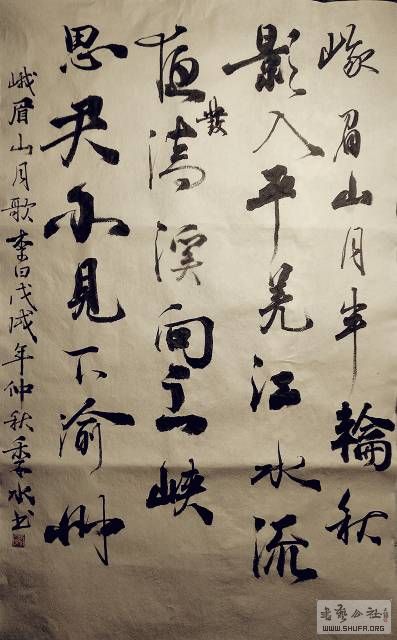 峨眉山月半輪秋
影入平羌江水流
夜發清溪向三峡
思君不見下渝州
峨眉山月歌李白戊戌年仲秋水书
书艺公社
WWW.SHUFA.ORG